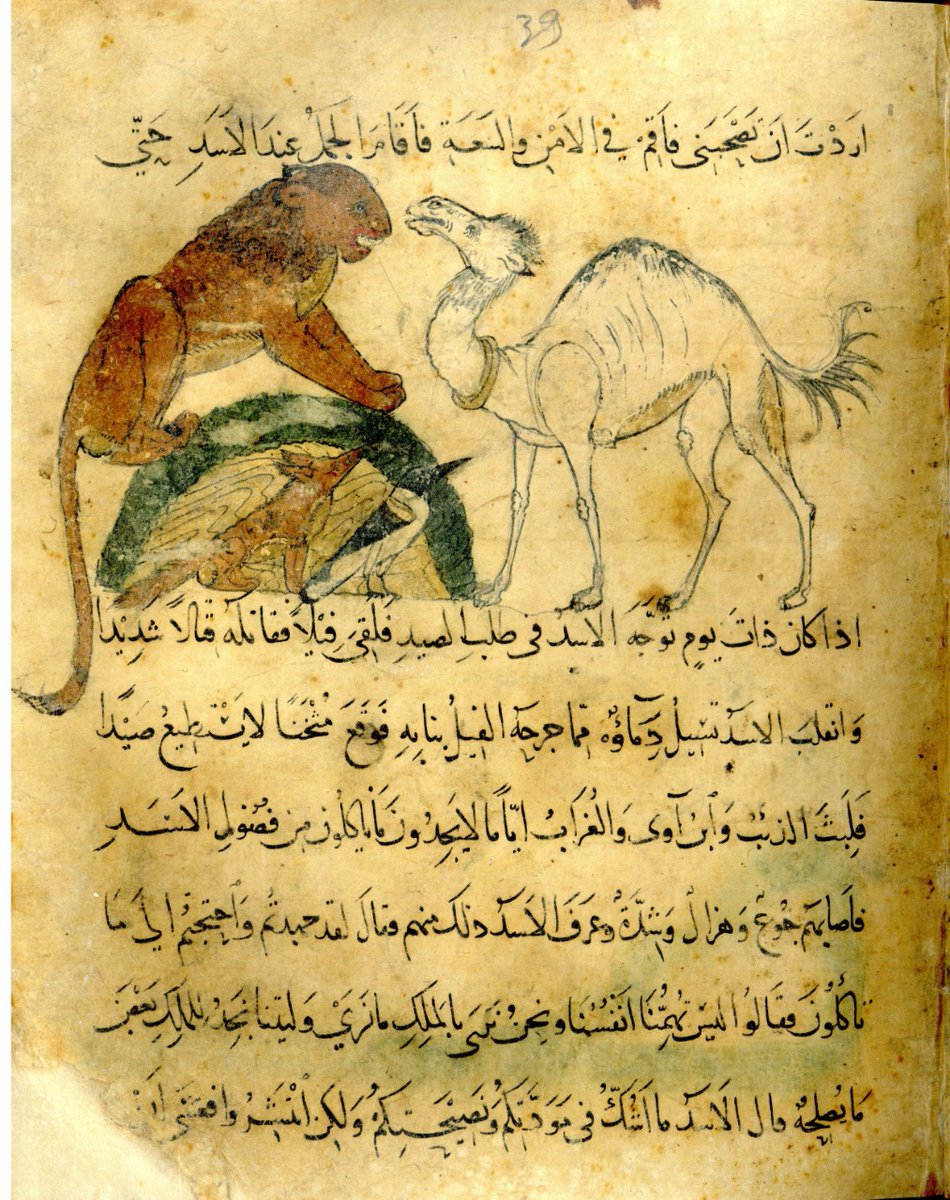 39
اردْتَ ان تَصْحَبَنى فاَقِمْ فى الامْنِ والسَعَة فاَقامَ الجمَلُ عِندَ الاسَدِ حَتّي
اذا كان ذاتَ يومٍ توَجَّه الاسَدُ فى طلبِ الصيدِ فلقىَ فيْلاً فقاتله قتالاً شديْدا
وَانقلبَ الاسَدُ تسيْلُ دِمآؤهُ ممّا جرحَهُ الفيلُ بنابهِ فَوقعَ مُثْخَنًا لايَسْتطيعُ صَيْدًا
فلَبثَ الذئبُ وَابْن آوى وَالغُرابُ ايّامًا لايَجِدُونَ مَا ياكلون من فضولِ الاسَدِ
فاَصابهُم جُوْعٌ وَهزالٌ وَشِدَّةٌ وعرَفَ الاسَدُ ذلكَ منهم فقالَ لقد جهدتُم وَاحتجتُم الىَ مَا
تاكلُوْنَ فقالوُا ليسَ تُهِمُّنَا انفُسُنا ونحنُ نرَى بالمَلِكِ مانَرَيْ وَليتنا نجدُ للملكِ بَعْضَ
مَا يُصلِحُهُ قال الاسَدُ ما اشكُّ فى مَوَدَّتِكُم وَنَصِيْحَتِكُمْ وَلكِن انتشِرُوا فعسَى ان